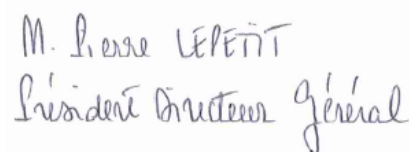 M. Pierre LEPETIT
Président Directeur Général